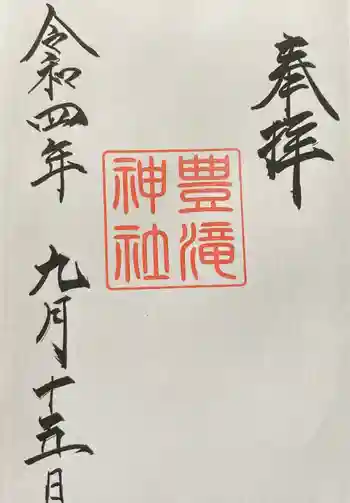 奉拝
豊滝
神社
令和四年 九月十五日